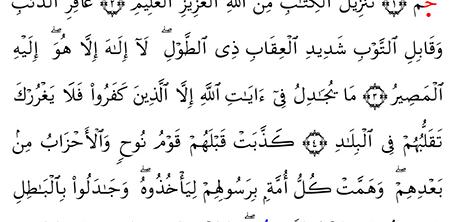 حمٓ ﴿١﴾ تَنزِيلُ ٱلْكِتَٰبِ مِنَ ٱللَّهِ ٱلْعَزِيزِ ٱلْعَلِيمِ ﴿٢﴾ غَافِرِ ٱلذَّنۢبِ
وَقَابِلِ ٱلتَّوْبِ شَدِيدِ ٱلْعِقَابِ ذِى ٱلطَّوْلِ ۖ لَآ إِلَٰهَ إِلَّا هُوَ ۖ إِلَيْهِ
ٱلْمَصِيرُ ﴿٣﴾ مَا يُجَٰدِلُ فِىٓ ءَايَٰتِ ٱللَّهِ إِلَّا ٱلَّذِينَ كَفَرُوا۟ فَلَا يَغْرُرْكَ
تَقَلُّبُهُمْ فِى ٱلْبِلَٰدِ ﴿٤﴾ كَذَّبَتْ قَبْلَهُمْ قَوْمُ نُوحٍ وَٱلْأَحْزَابُ مِنۢ
بَعْدِهِمْ ۖ وَهَمَّتْ كُلُّ أُمَّةٍۭ بِرَسُولِهِمْ لِيَأْخُذُوهُ ۖ وَجَٰدَلُوا۟ بِٱلْبَٰطِلِ